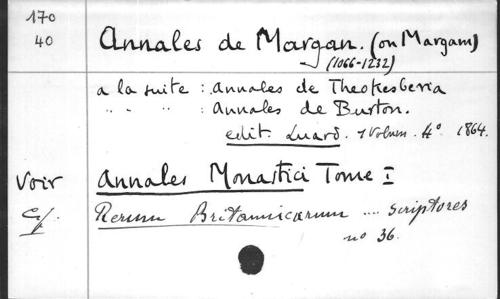 170
40
Annales de Margan. (ou Margam)
(1066-1232)
a la suite : annales de Theokesberia
" " " : annales de Burton.
edit. Luard. 1 Volum. 4º 1864.
Voir Annales Monastici Tome I
Cf. Rerum Britannicarum .... scriptores
nº 36.